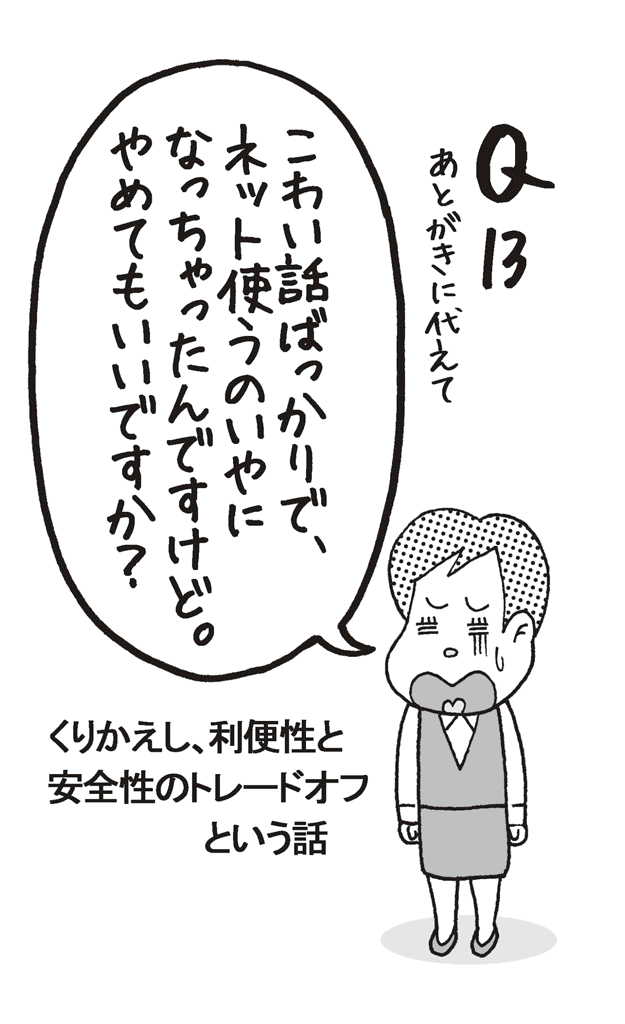 Q
13
あとがきに代えて
こわい話ばっかりで、
ネット使うのいやに
なっちゃったんですけど。
やめてもいいですか？
くりかえし、利便性と
安全性のトレードオフ
という話